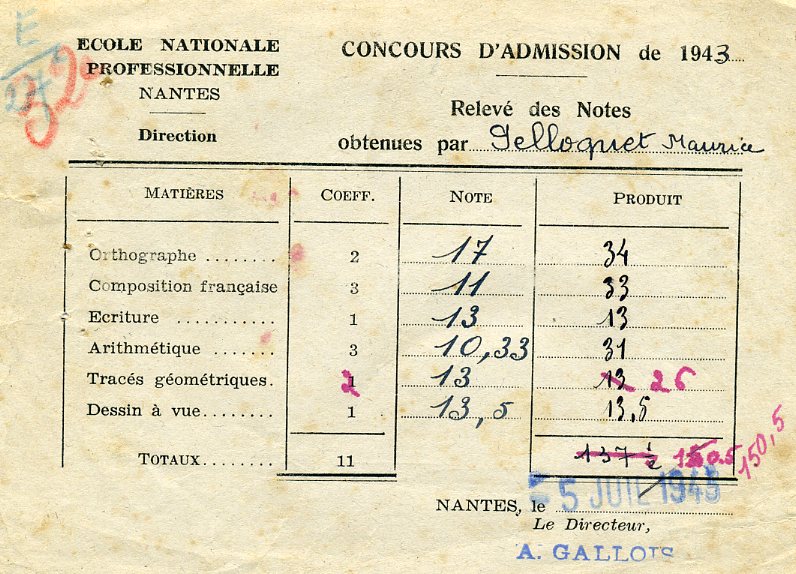 E
272
320
ECOLE NATIONALE
PROFESSIONNELLE
NANTES
Direction
CONCOURS D'ADMISSION de 1943
Relevé des Notes
obtenues par Pelloquet Maurice
MATIÈRES COEFF. NOTE PRODUIT
Orthographe ........ 2 17 34
Composition française 3 11 33
Ecriture .......... 1 13 13
Arithmétique ........ 3 10,33 31
Tracés géométriques. 1 2 13 13 26
Dessin à vue........ 1 13,5 13,5
TOTAUX........ 11 137 1/2 150.5 150,5
NANTES, le 5 JUIL 1943
Le Directeur,
A. GALLOIS